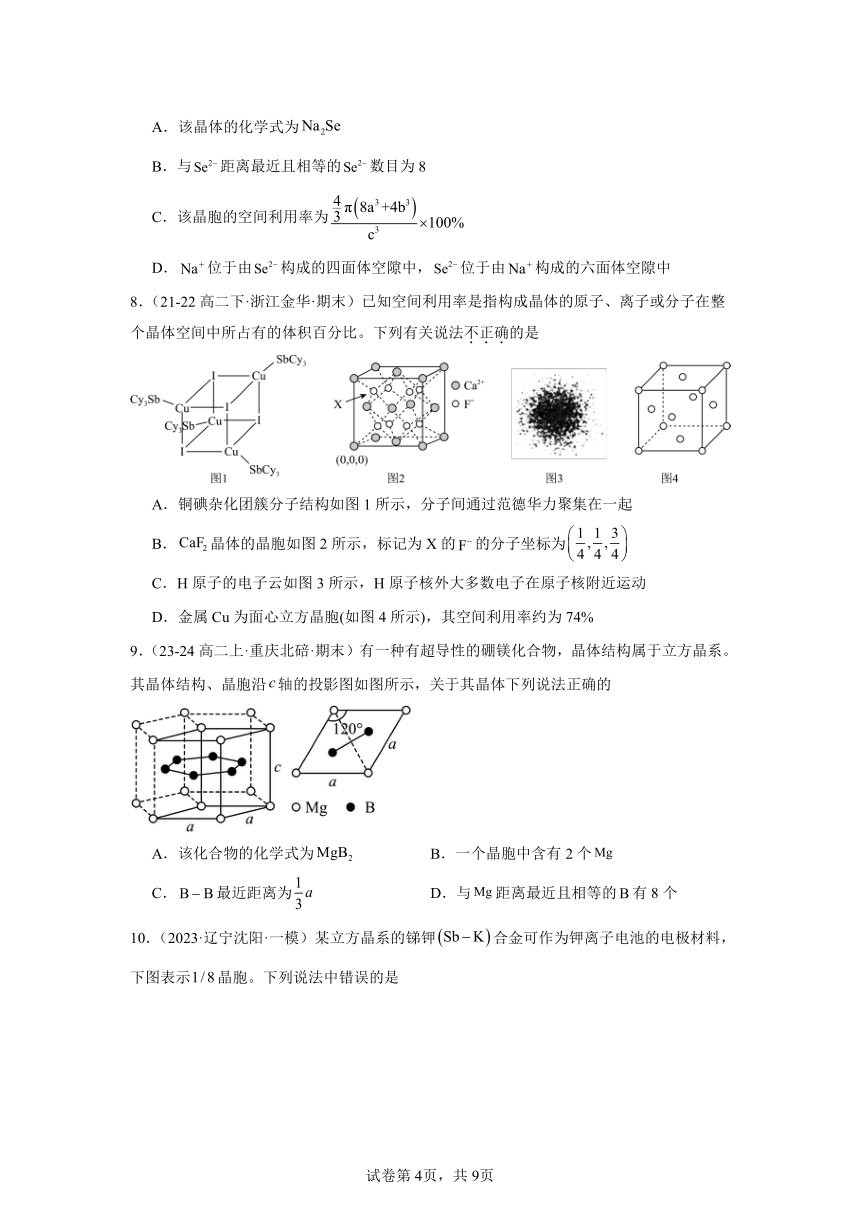 A．该晶体的化学式为Na₂Se
B．与Se²⁻距离最近且相等的Se²⁻数目为 8
C．该晶胞的空间利用率为 \frac{\frac{4}{3}π(8a³+4b³)}{c³}×100%
D．Na⁺位于由Se²⁻构成的四面体空隙中，Se²⁻位于由Na⁺构成的六面体空隙中
8.（21-22 高二下·浙江金华·期末）已知空间利用率是指构成晶体的原子、离子或分子在整
个晶体空间中所占有的体积百分比。下列有关说法不正确的是
SbCy₃
I Cu
Cy₃Sb Cu I
Cy₃Sb Cu I
I Cu
SbCy₃
图1
X
Ca²⁺
F⁻
(0,0,0)
图2
图3
图4
A．铜碘杂化团簇分子结构如图 1 所示，分子间通过范德华力聚集在一起
B．CaF₂晶体的晶胞如图 2 所示，标记为 X 的F⁻的分子坐标为(1/4,1/4,3/4)
C．H 原子的电子云如图 3 所示，H 原子核外大多数电子在原子核附近运动
D．金属 Cu 为面心立方晶胞(如图 4 所示)，其空间利用率约为 74%
9.（23-24 高二上·重庆北碚·期末）有一种有超导性的硼镁化合物，晶体结构属于立方晶系。
其晶体结构、晶胞沿c轴的投影图如图所示，关于其晶体下列说法正确的
c
a a
120°
a
a
Mg B
A．该化合物的化学式为MgB₂ B．一个晶胞中含有 2 个Mg
C．B－B最近距离为\frac{1}{3}a D．与Mg距离最近且相等的B有 8 个
10.（2023·辽宁沈阳·一模）某立方晶系的锑钾(Sb－K)合金可作为钾离子电池的电极材料，
下图表示1/8晶胞。下列说法中错误的是
试卷第 4页，共 9页